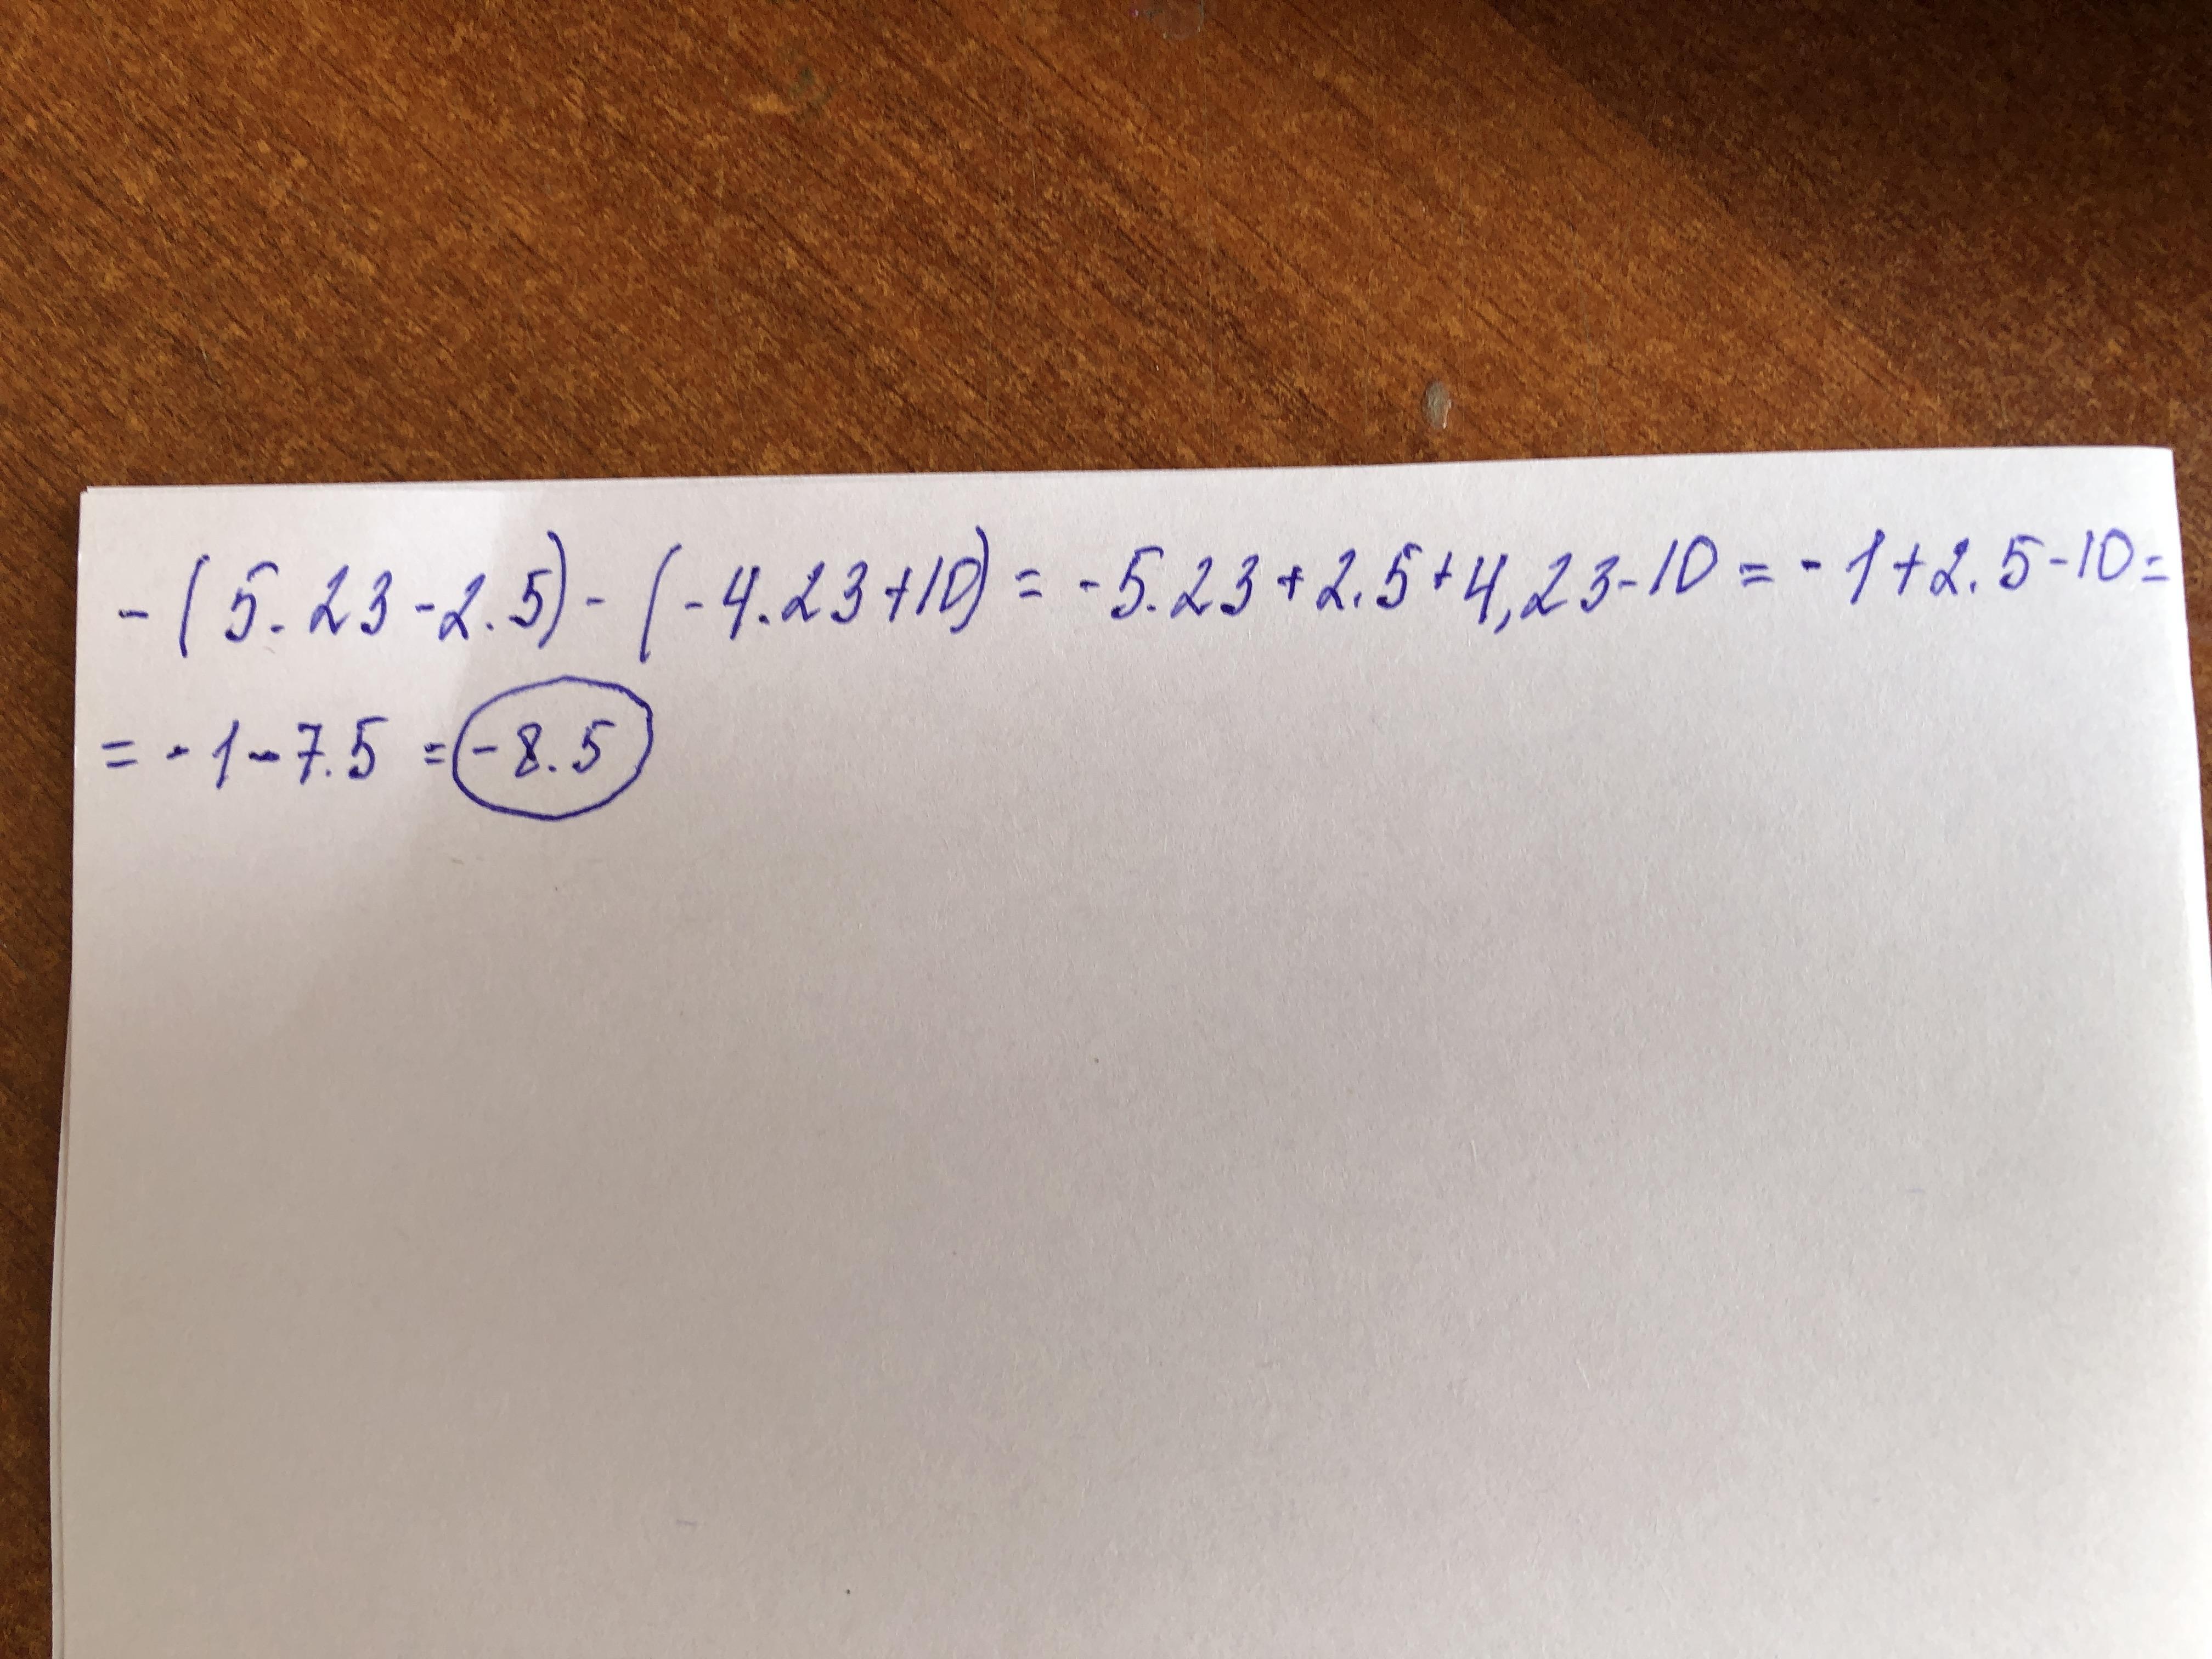 - (5.23-2.5) - (-4.23+10) = -5.23+2.5+4,23-10 = -1+2.5-10=
= -1-7.5 = -8.5